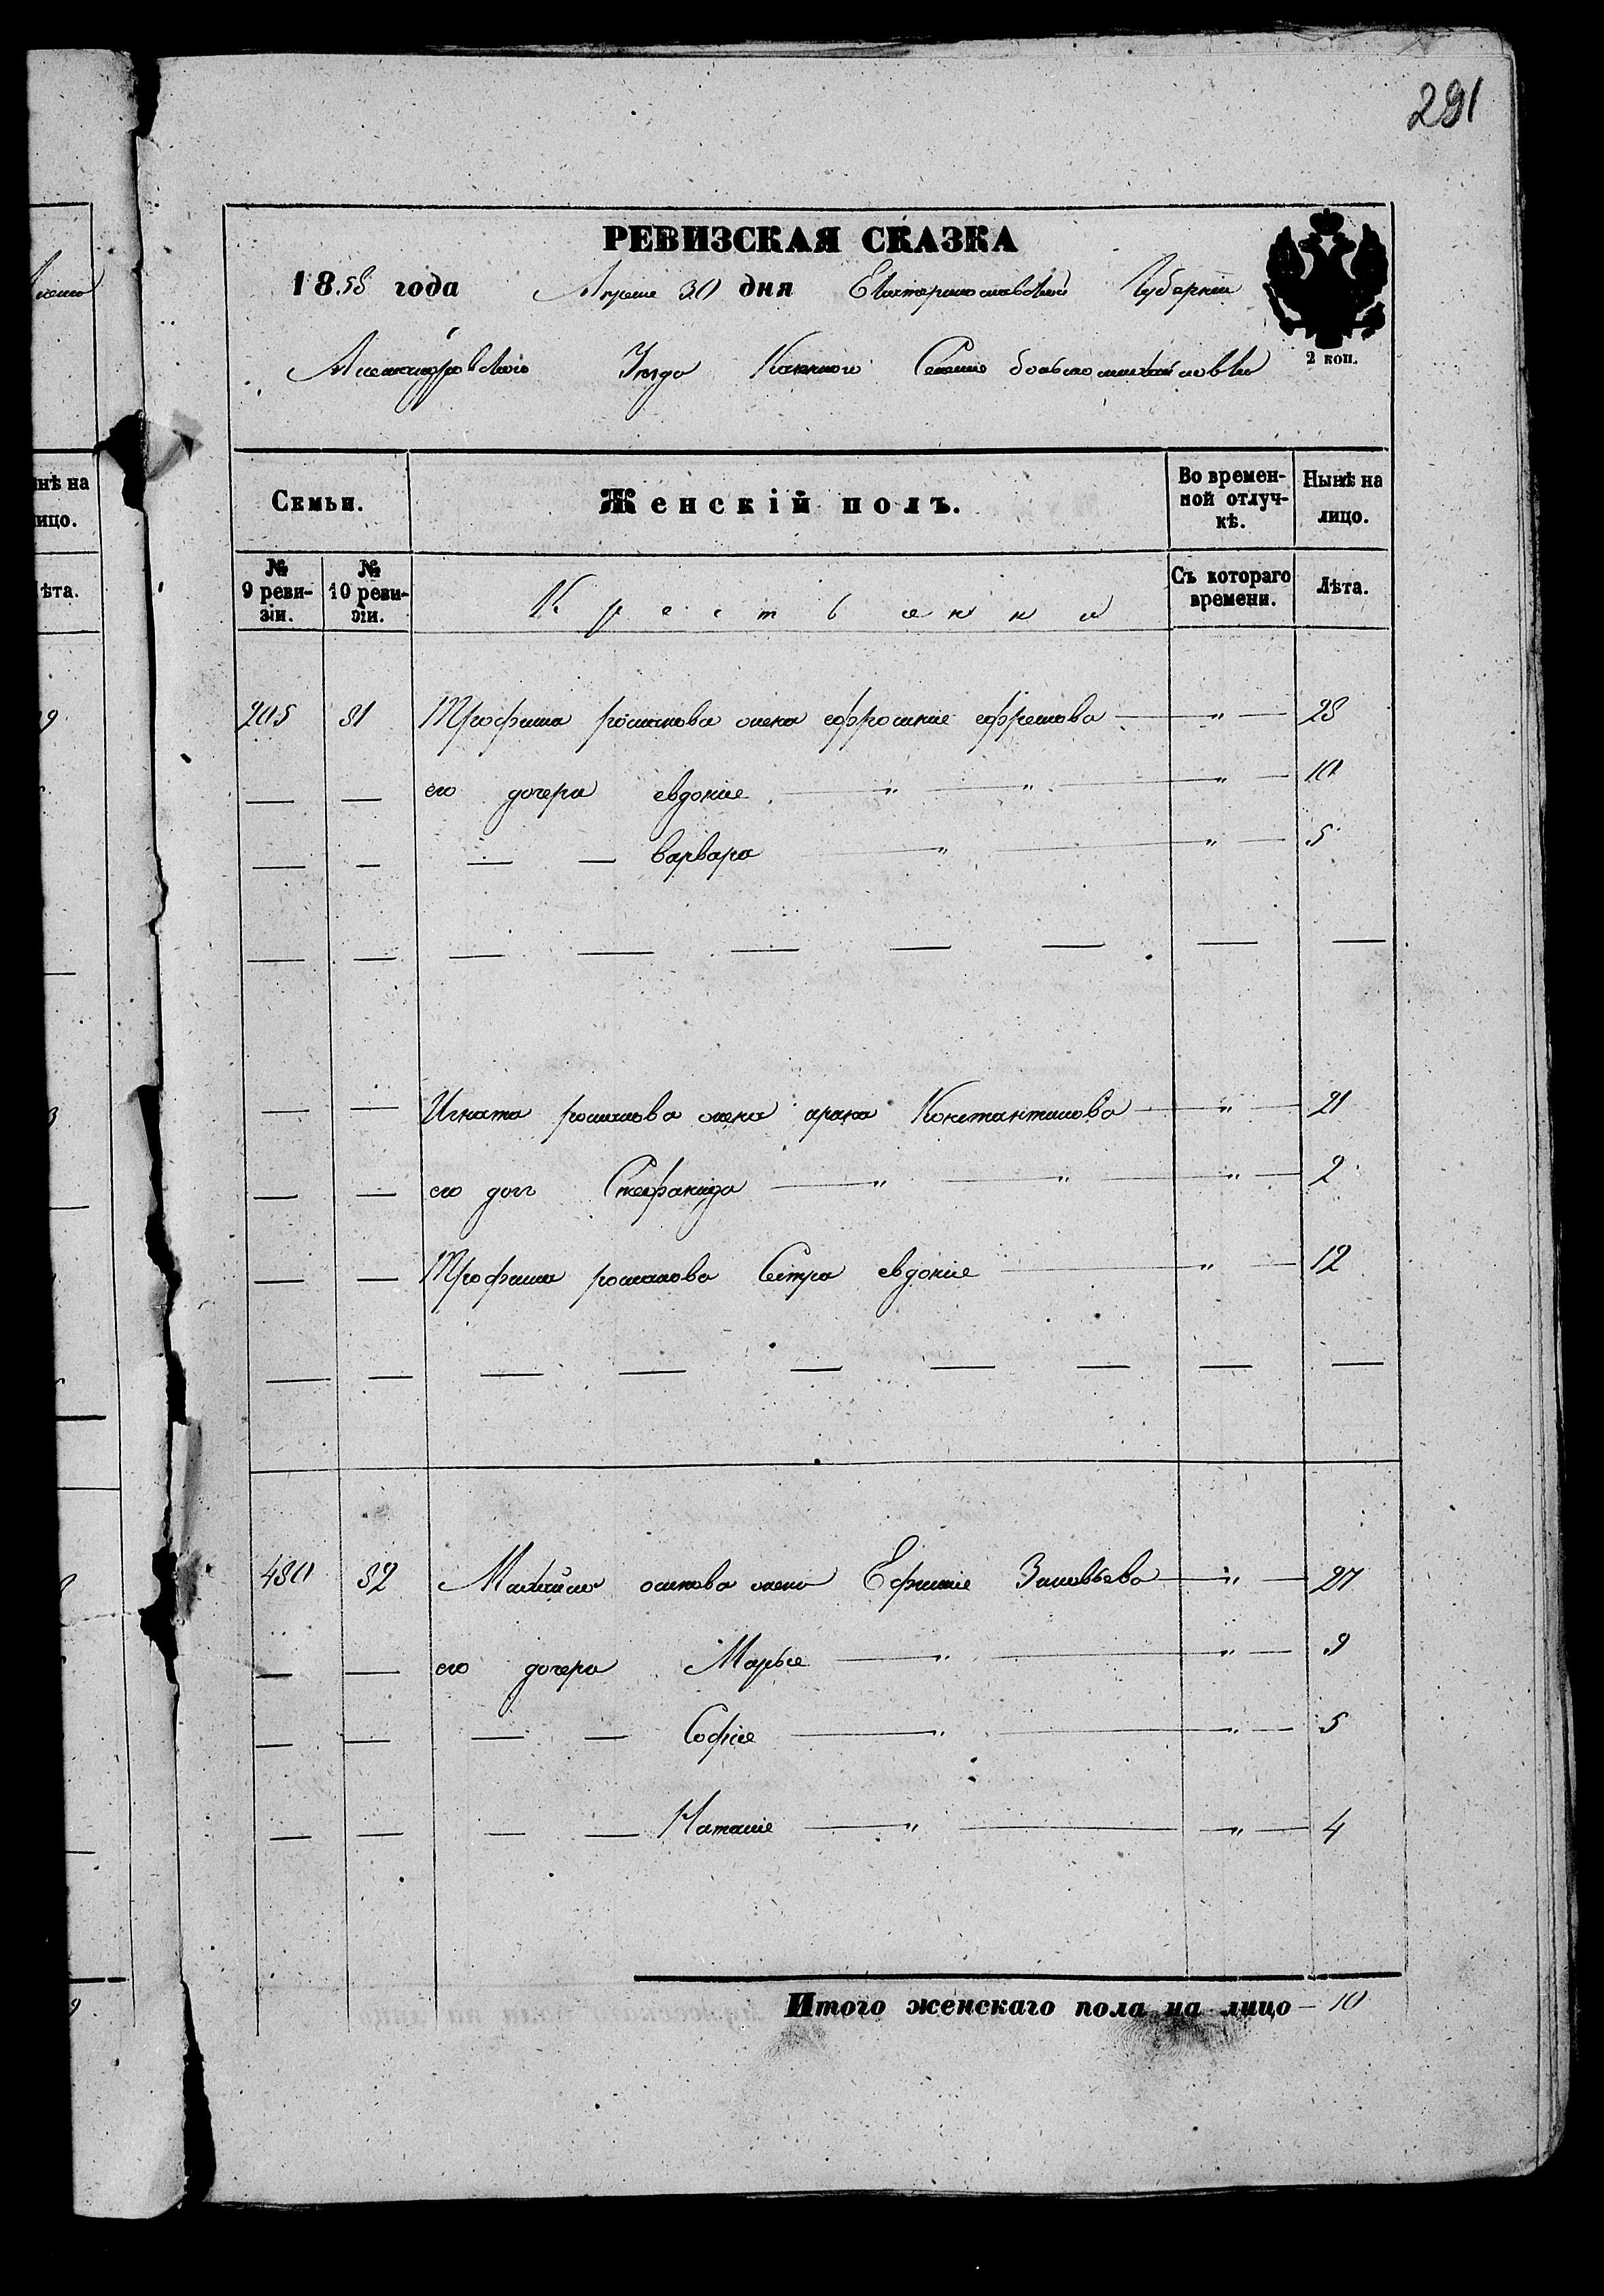 291
РЕВИЗСКАЯ СКАЗКА
1858 года Апреля 30 дня Екатеринославской Губернии
Александровского Уезда Казенного Селения большомихайловки
2 коп.
Семьи. Женскій полъ. Во времен-ной отлуч-кѣ. Нынѣ на лицо.
№ 9 реви-зіи. № 10 реви-зіи. Крестьянки Съ котораго времени. Лѣта.
205 81 Трофима романова жена ефросиния ефремова — " — 28
— — его дочери евдокия — " — " — " — 10
— — — — варвара — " — " — 5
— — — — — — — — —
— — Игната романова жена ирина Константинова — " — 21
— — его доч Степанида — " — " — " — 2
— — Трофима романова Сестра евдокия — " — 12
— — — — — — — — —
480 82 Михайла осипова жена Ефимия Зиновьева — " — 27
— — его дочери Марья — " — " — 9
— — — — София — " — " — 5
— — — — Наталия — " — " — 4
Итого женскаго пола на лицо — 10
нѣ на
ицо.
ѣта.